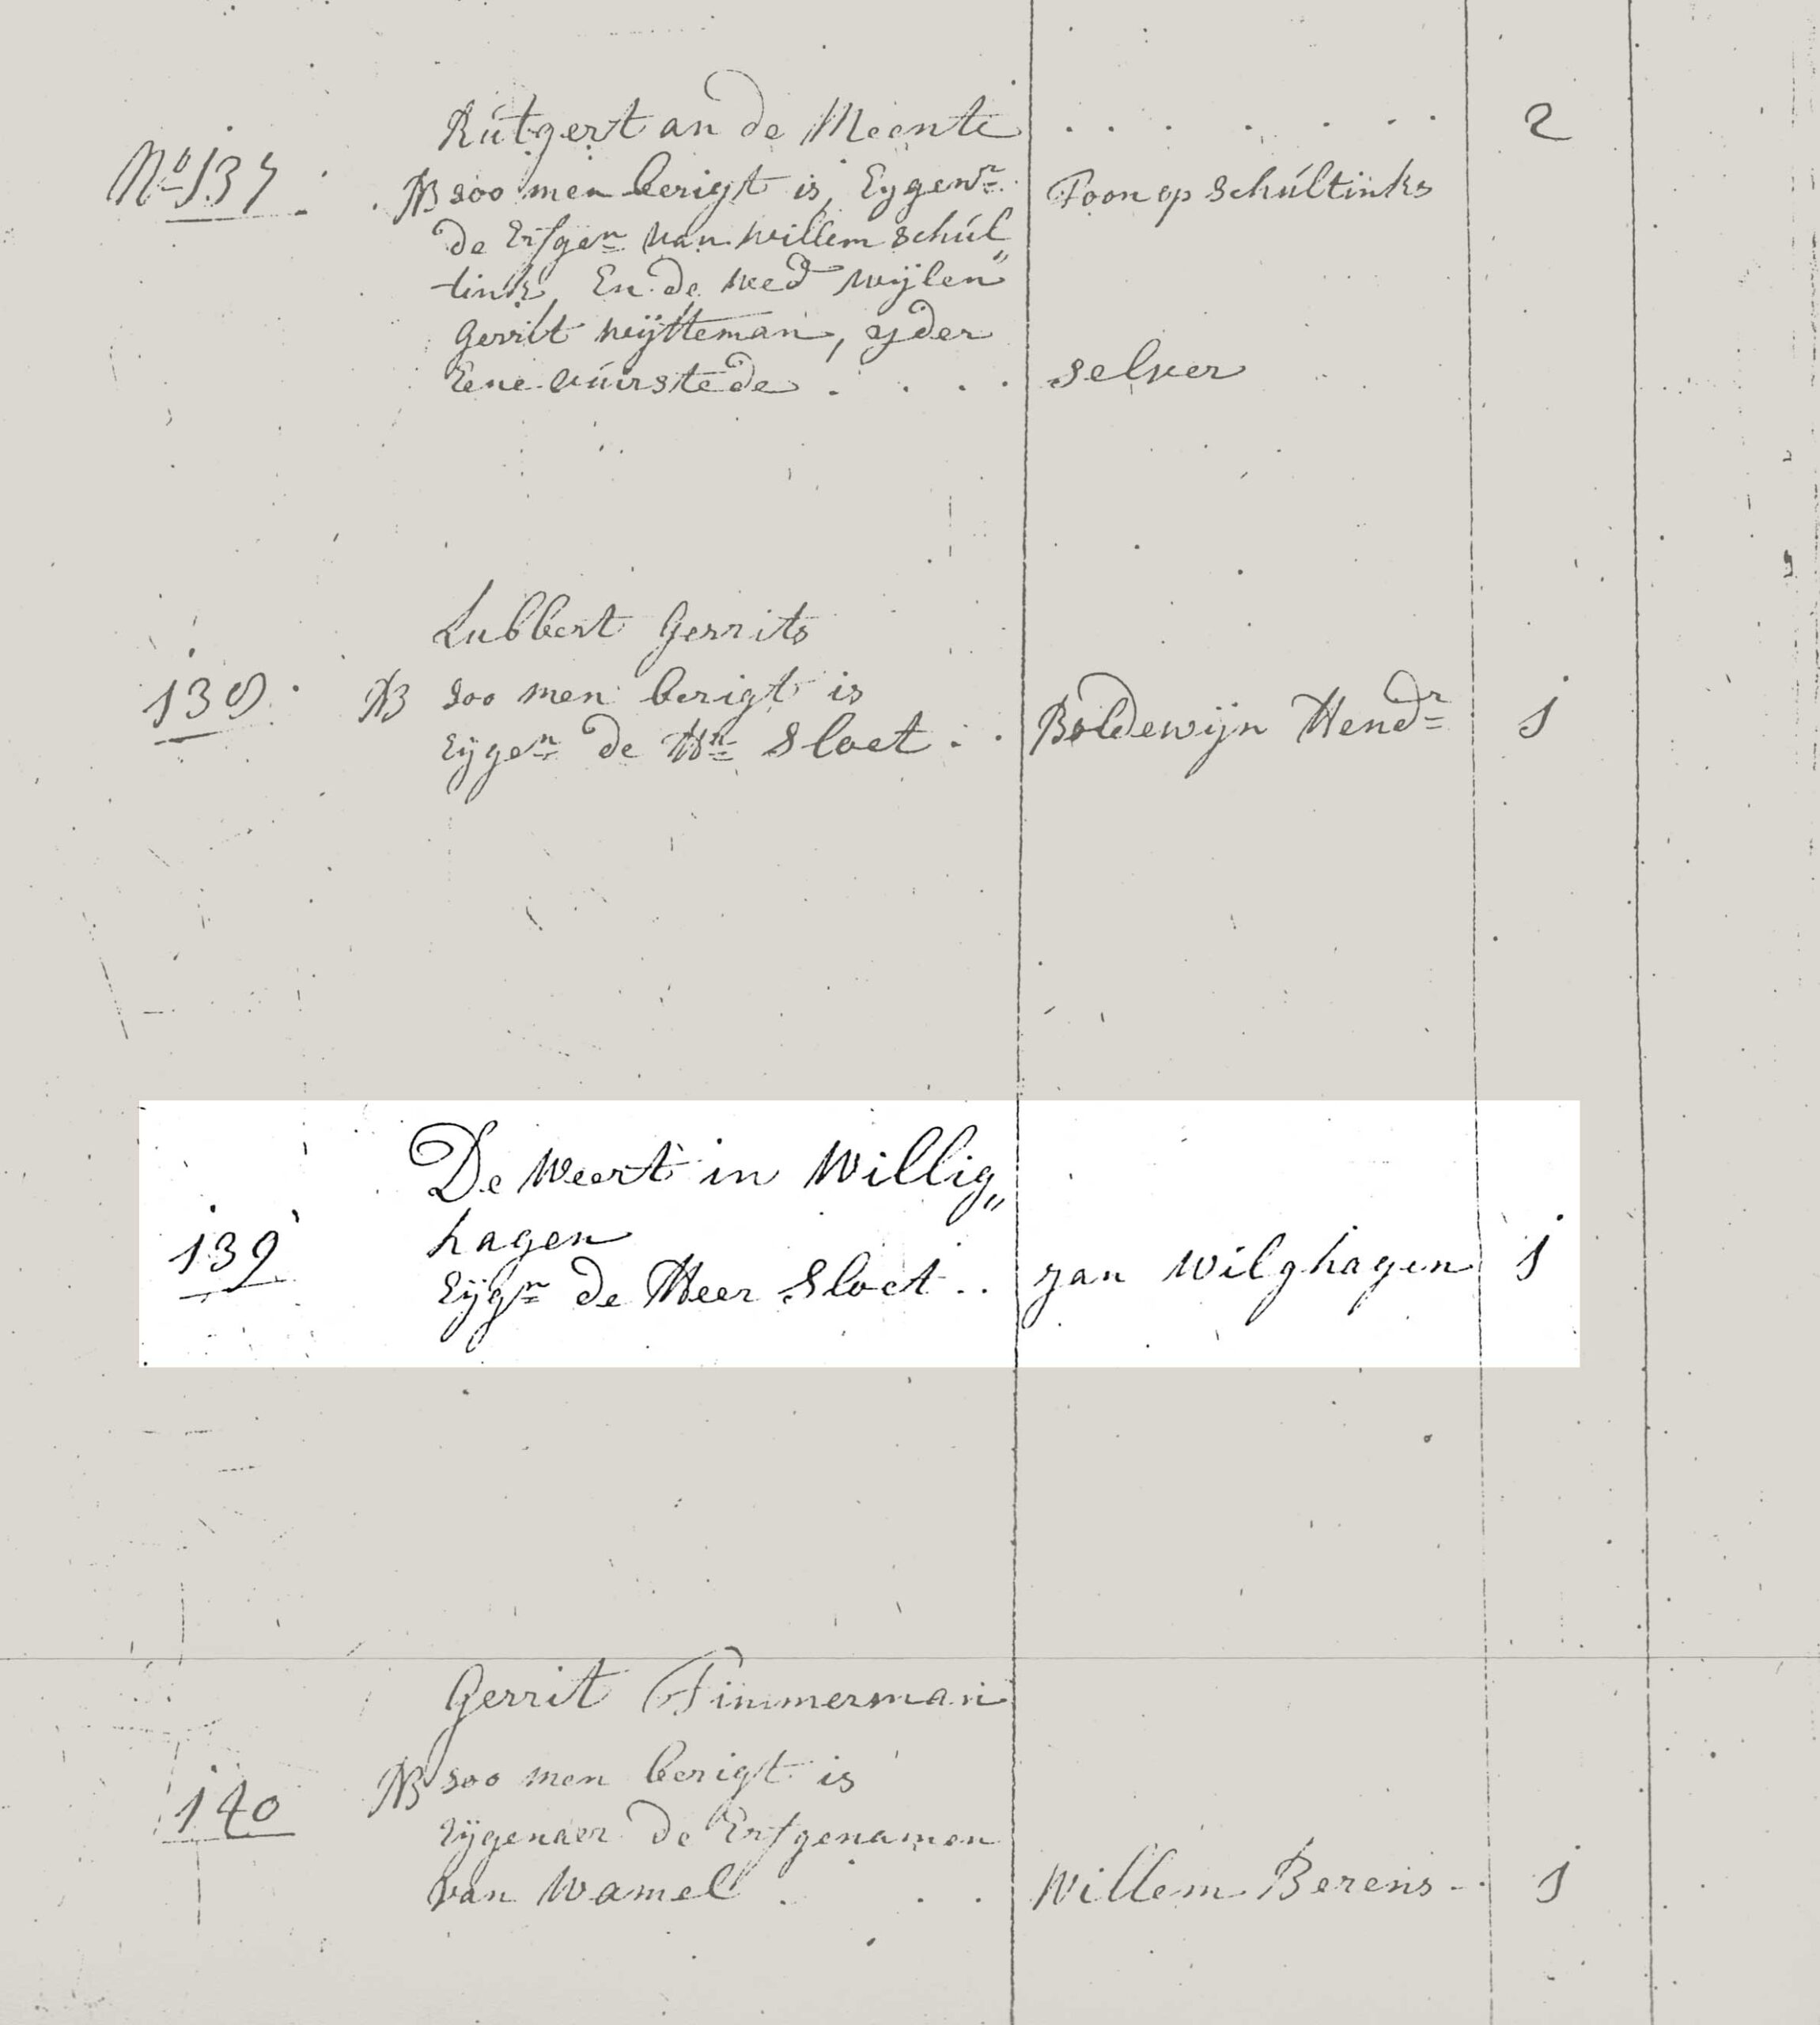 Rutgert an de Meente . . . . . . . . 2
No 137 . NB soo men berigt is, Eygenr. Toon op Schúltinks
de Erfgen van Willem Schúl„
tink, En de Wed wijlen
Gerrit Wijtteman, yder
Eene vúúrstede . . . . selver
Lubbert Gerrits
138 . NB soo men berigt is
Eijgen de Hr Sloet . . Boldewijn Hendr 1
De Weert in Willig„
hagen
139 Eijgr de Heer Sloet . . Jan Wilghagen 1
Gerrit Timmerman
NB soo men berigt is
140 Eijgenaer de Erfgenamen
van Wamel . . . Willem Berens . . 1